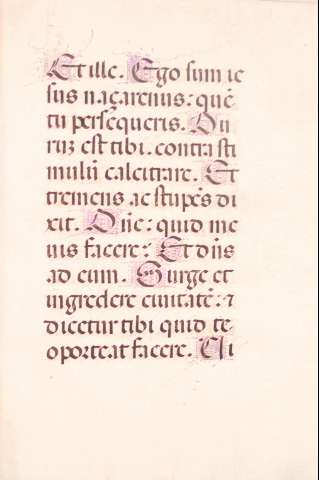 Et ille. Ego sum ie
sus naçarenus: quē
tu persequeris. Du
ruȝ est tibi. contra sti
mulū calcitrare. Et
tremens ac stupēs di
xit. Dn̄e: quid me
uis facere? Et dn̄s
ad eum. Surge et
ingredere ciuitatē: ⁊
dicetur tibi quid te
oporteat facere. Ui